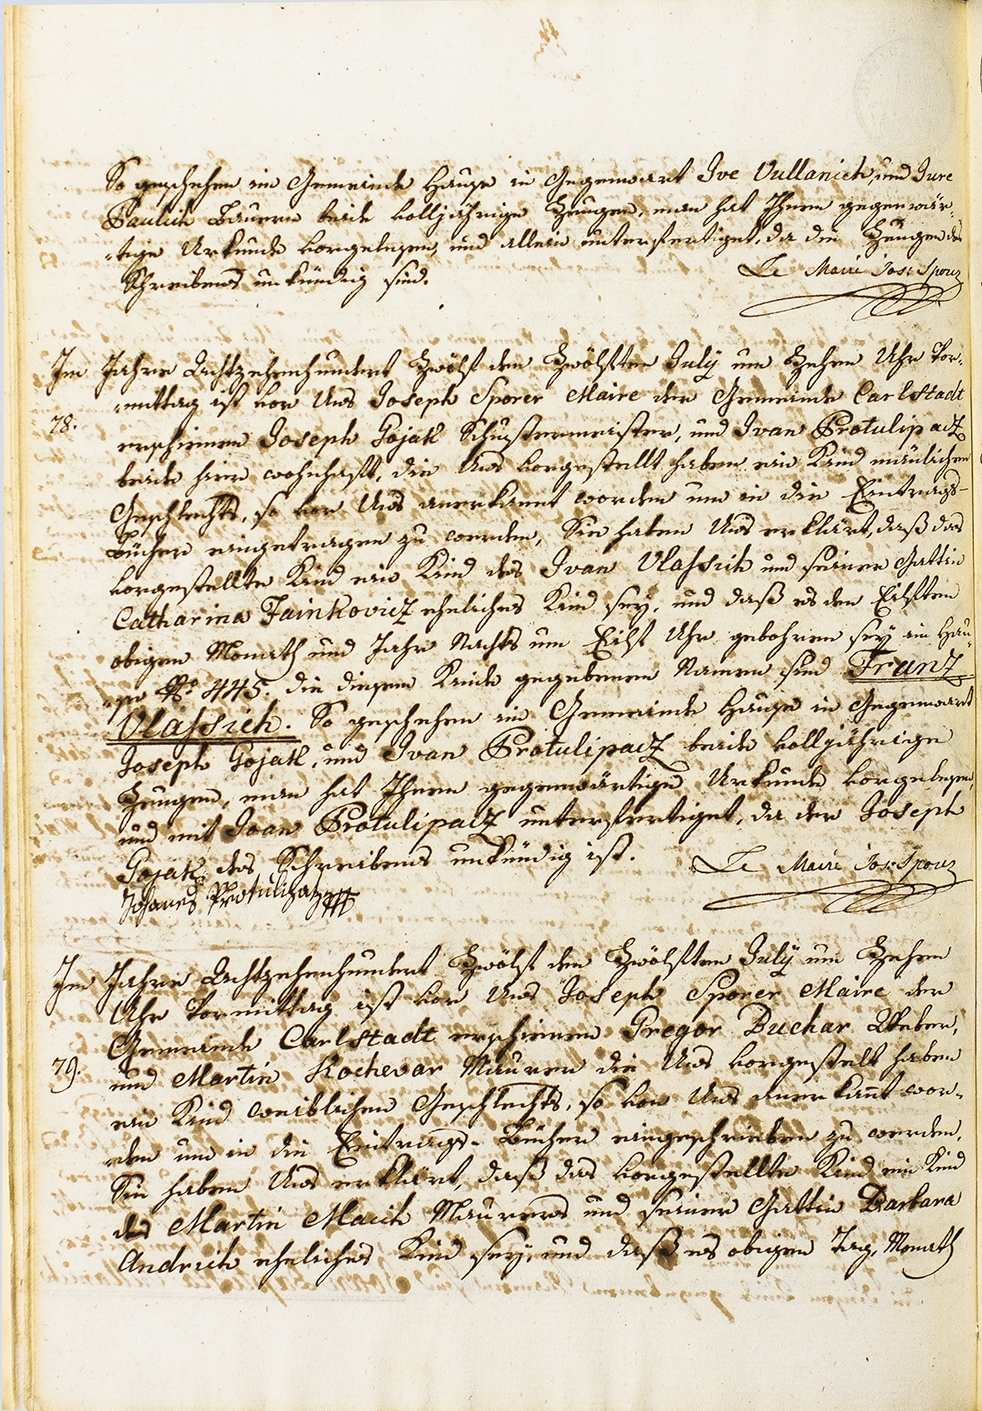 So geschehen im Gemeinde Hause in Gegenwart Ive Vullanich, und Jure
Paulich Bauern beide volljährige Zeugen, man hat Ihnen gegenwär
-tige Urkunde vorgelesen, und allein unterfertiget, da die Zeugen des
Schreibens unkündig sind.
Le Maire Jos: Sporer
Im Jahre Achtzehenhundert Zwölf den Zwölften July um Zehen Uhr Vor-
-mittag ist vor Uns Joseph Sporer Maire der Gemeinde Carlstadt
78.
erschienen Joseph Gojak Schustermeister, und Ivan Protulipacz
beide hier wohnhaft, die Uns vorgestellt haben ein Kind mänlichen
Geschlechts, so vor Uns anerkannt worden um in die Eintrags-
Bücher eingetragen zu werden, Sie haben Uns erklärt, daß das
vorgestellte Kind ein Kind des Ivan Vlassich und seiner Gattin
Catharina Jainkovicz eheliches Kind sey, und daß es den Eilften
obigen Monath und Jahr Nachts um Eilf Uhr gebohren sey im Hau-
-se No. 445. die diesem Kinde gegebenen Namen sind Franz
Vlassich. So geschehen im Gemeinde Hause in Gegenwart
Joseph Gojak, und Ivan Protulipacz beide volljährige
Zeugen, man hat Ihnen gegenwärtige Urkunde vorgelesen,
und mit Ivan Protulipacz unterfertiget, da der Joseph
Gojak des Schreibens unkündig ist.
Le Maire Jos: Sporer
Joanes Protulipatz
Im Jahre Achtzehenhundert Zwölf den Zwölften July um Zehen
Uhr Vormittag ist vor Uns Joseph Sporer Maire der
Gemeinde Carlstadt erschienen Gregor Buchar Weber,
79.
und Martin Kochevar Maurer die Uns vorgestelt haben
ein Kind weiblichen Geschlechts, so vor Uns anerkant wor-
-den um in die Eintrags-Bücher eingeschrieben zu werden,
Sie haben Uns erklärt, daß das vorgestellte Kind ein Kind
des Martin Maich Maurers und seiner Gattin Barbara
Andrich eheliches Kind sey, und daß es obigen Tag, Monath